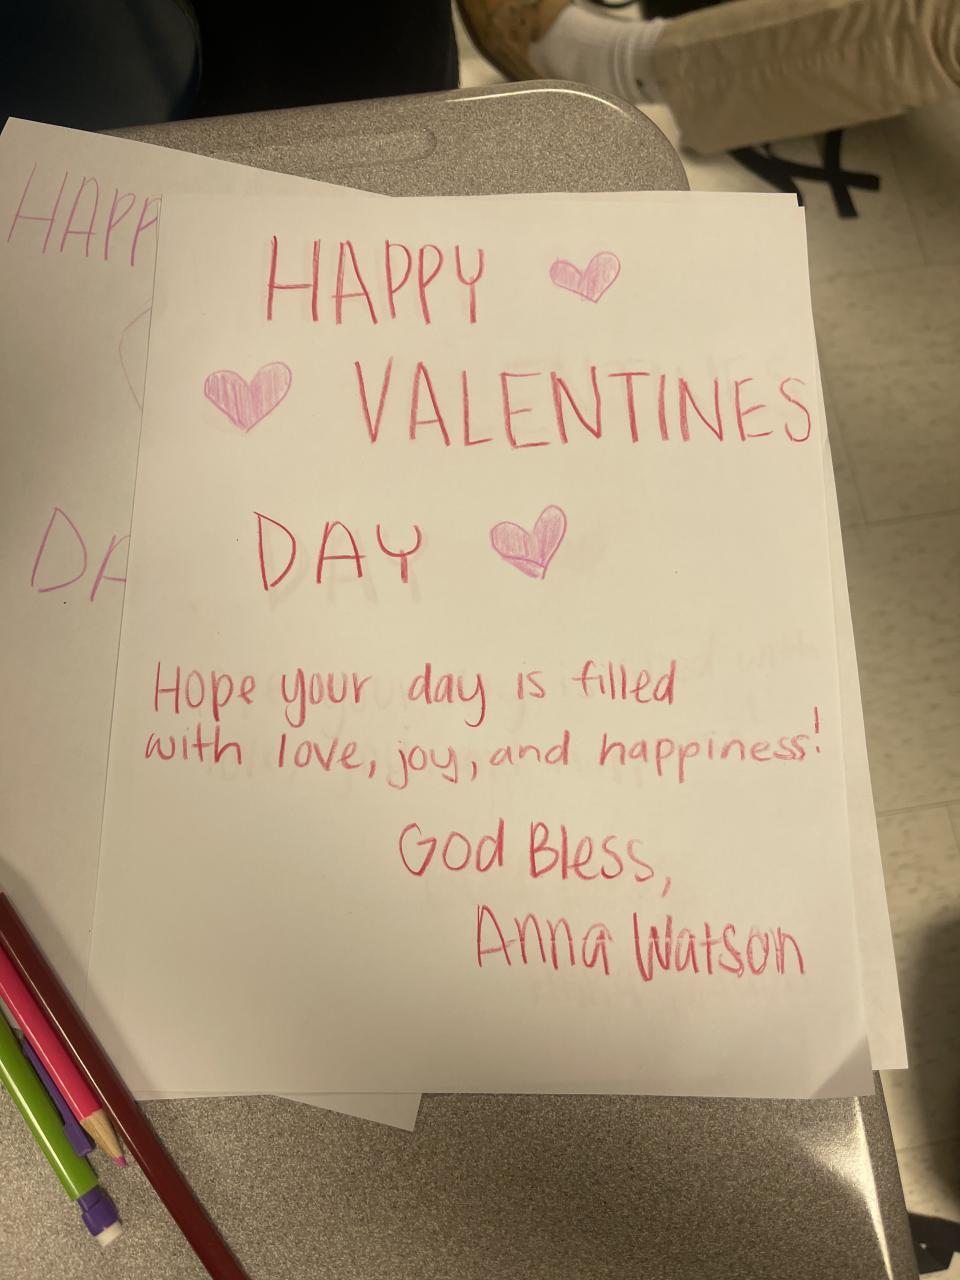 HAPPY
VALENTINES
DAY
Hope your day is filled
with love, joy, and happiness!
God Bless,
Anna Watson
HAPP
DA